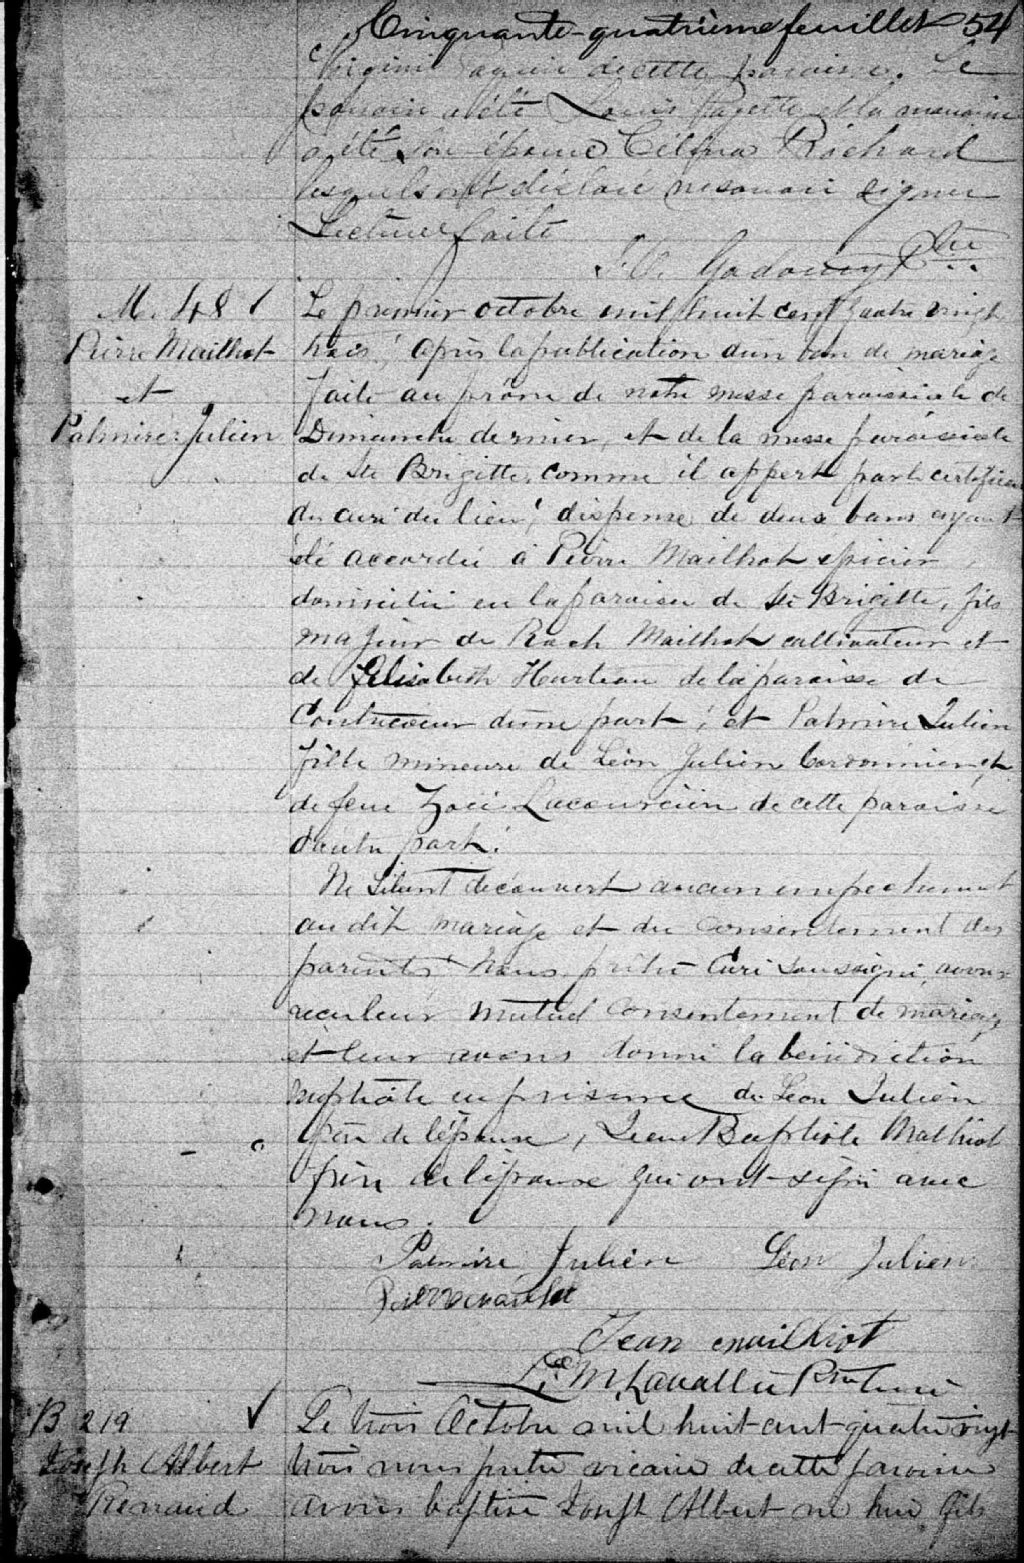 Cinquante-quatrième feuillet 54
de cette paroisse. Le
parrain a été Louis Payette et la marraine
a été son épouse Célina Richard
lesquels ont déclaré ne savoir signer
Lecture faite
Ptre
M. 48
Pierre Mailhot
et
Palmire Julien
Le premier octobre mil huit cent quatre vingt
trois, après la publication d'un ban de mariage
faite au prône de notre messe paroissiale de
Dimanche dernier, et de la messe paroissiale
de Ste Brigitte, comme il appert par le certificat
du curé du lieu, dispense de deux bans ayant
été accordée à Pierre Mailhot épicier,
domicilié en la paroisse de Ste Brigitte, fils
majeur de Roch Mailhot cultivateur et
de Elisabeth Hurteau de la paroisse de
Contrecoeur d'une part, et Palmire Julien
fille mineure de Léon Julien Cordonnier et
de feue Zoé Lacoursière de cette paroisse
d'autre part.
Ne s'étant découvert aucun empechement
au dit mariage et du consentement des
parents Nous prêtre Curé soussigné, avons
recu leur mutuel consentement de mariage
et leur avons donné la bénédiction
nuptiale en présence de Léon Julien
père de l'épouse, Jean Baptiste Malhiot
frère de l'épouse qui ont signé avec
nous.
Palmire Julien Léon Julien
Pierre
Jean mailhiot
M. Lavallée Ptre Curé
B 219
Joseph Albert
Renaud
Le trois Octobre mil huit cent quatre vingt
trois nous prêtre vicaire de cette paroisse
avons baptisé Joseph Albert né hier fils